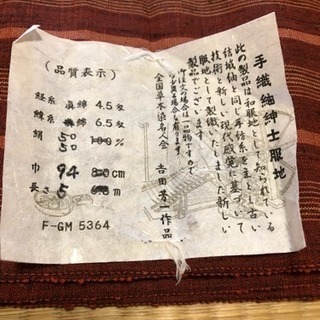 手織紬紳士服地
此の製品は和服地として知られている
結城紬と同じ手紡糸を主とし古い
技術と新しい現代感覚に基づいて
服地として製織いたしました新しい
製品でございます。
全国草木染名人会 吉田芳一作品
(品質表示)
経糸 真綿 4.5匁
緯糸 真綿 6.5匁
絹 100%
50
50
巾 94 cm
長さ 5 m
F-GM 5364